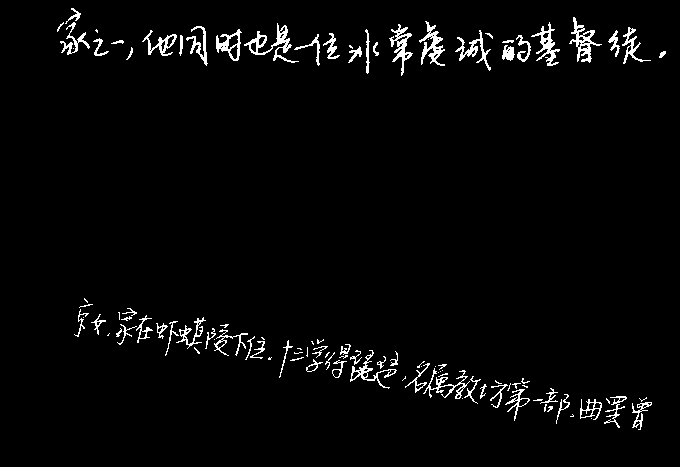 家之一,他同时也是一位非常虔诚的基督徒。
京女,家在虾蟆陵下住.十三学得琵琶,名属教坊第一部.曲罢曾